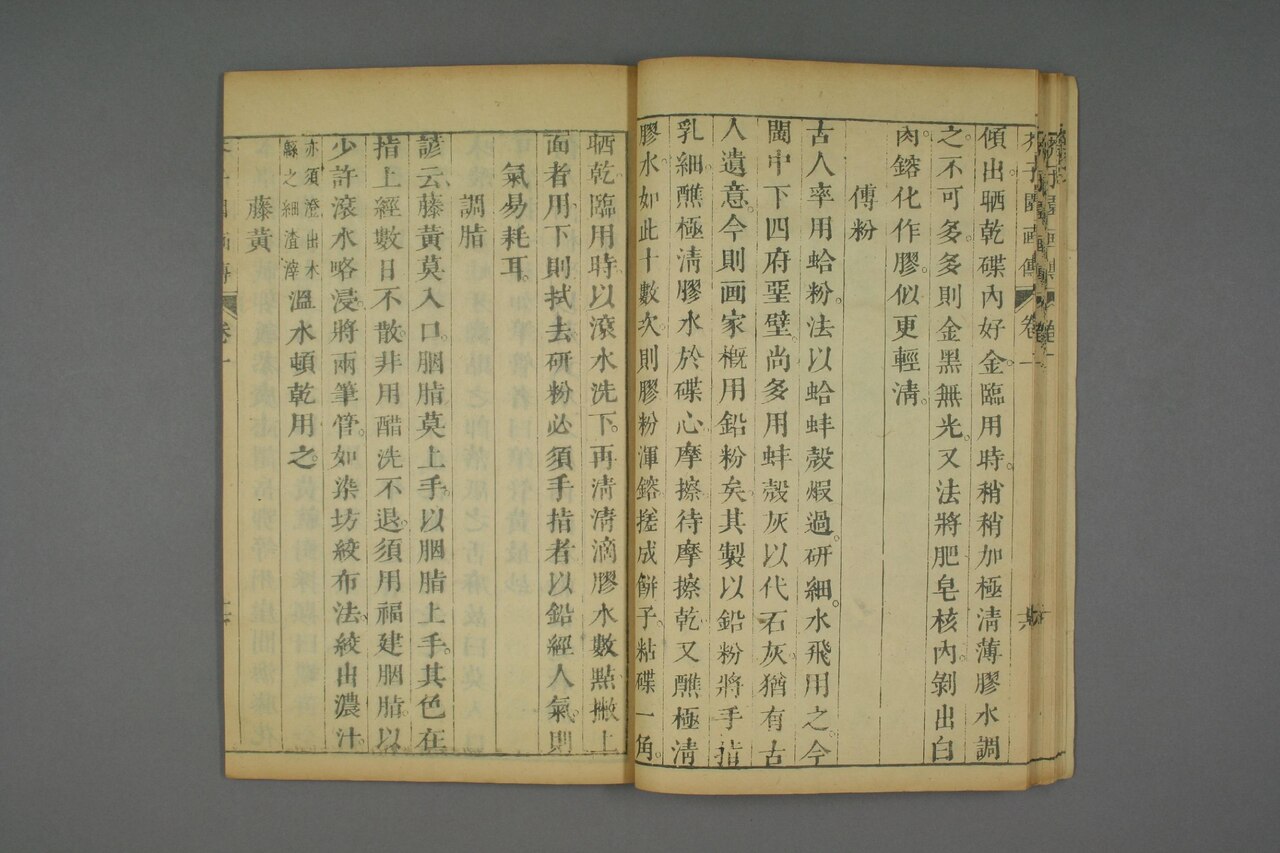 芥子園画傳 卷一
傾出晒乾碟內好金。臨用時。稍稍加極淸薄膠水調
之。不可多。多則金黑無光。又法將肥皂核內。剝出白
肉。鎔化作膠。似更輕淸。
傅粉
古人率用蛤粉。法以蛤蚌殼煅過。研細。水飛用之。今
閩中下四府堊壁。尚多用蚌殼灰以代石灰。猶有古
人遺意。今則画家槪用鉛粉矣。其製以鉛粉將手指
乳細。蘸極淸膠水於碟心摩擦。待摩擦乾。又蘸極淸
膠水。如此十數次。則膠粉渾鎔。搓成餠子。粘碟一角。
晒乾。臨用時。以滾水洗下。再淸淸滴膠水數點。撇上
面者用。下則拭去。研粉必須手指者。以鉛經人氣。則
氣易耗耳。
調脂
諺云。藤黃莫入口。胭脂莫上手。以胭脂上手。其色在
指上。經數日不散。非用醋洗不退。須用福建胭脂。以
少許滾水略浸。將兩筆管。如染坊絞布法。絞出濃汁。
溫水頓乾用之。
亦須澄出木
綿之細渣滓
藤黃
卷一